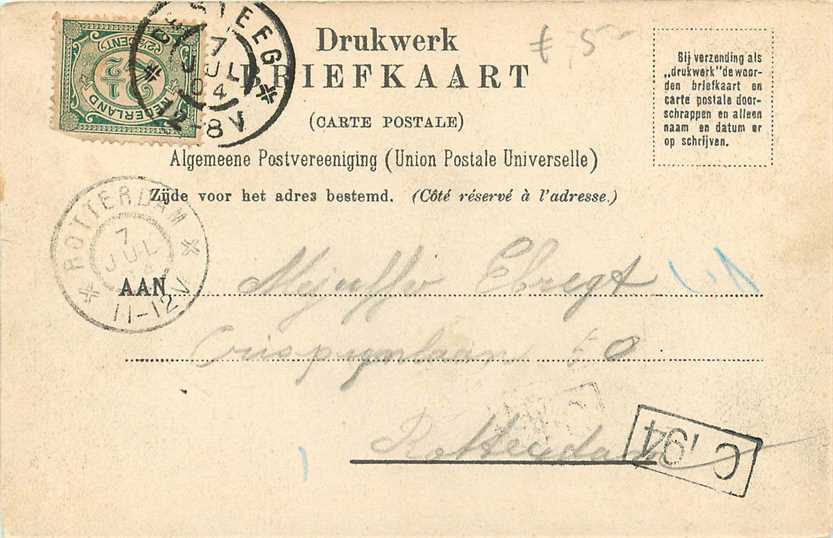 Drukwerk
BRIEFKAART
(CARTE POSTALE)
Algemeene Postvereeniging (Union Postale Universelle)
Zijde voor het adres bestemd. (Côté réservé à l'adresse.)
Bij verzending als
„drukwerk" de woor-
den briefkaart en
carte postale door-
schrappen en alleen
naam en datum er
op schrijven.
f 5-
NEDERLAND
2½
2½ CENT
STEEG
7
JUL
04
12-8V
ROTTERDAM
7
JUL
11-12V
AAN
Mejuffr Ebregt
Crispijnlaan 50
Rotterdam
C '94